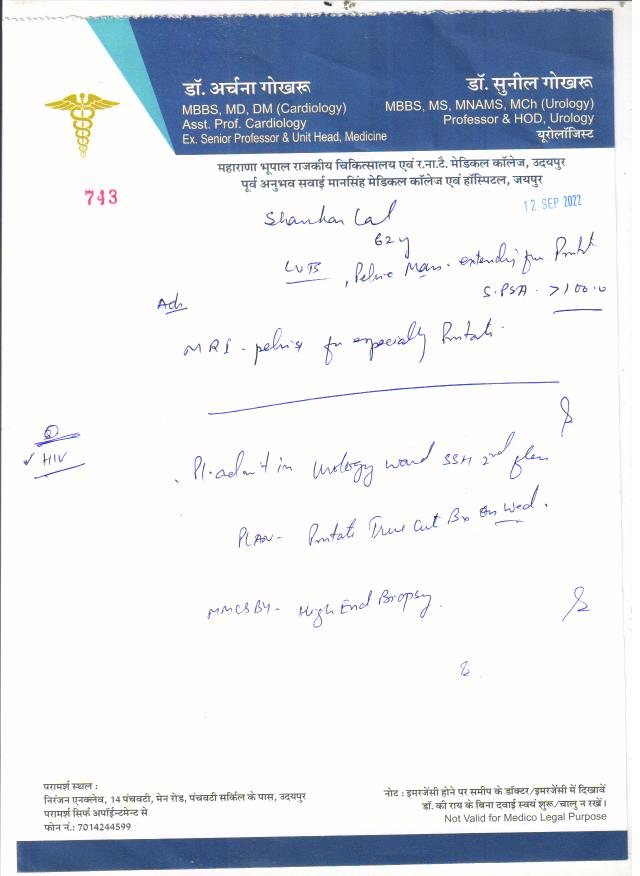 डॉ. अर्चना गोखरू
MBBS, MD, DM (Cardiology)
Asst. Prof. Cardiology
Ex. Senior Professor & Unit Head, Medicine
डॉ. सुनील गोखरू
MBBS, MS, MNAMS, MCh (Urology)
Professor & HOD, Urology
यूरोलॉजिस्ट
महाराणा भूपाल राजकीय चिकित्सालय एवं र.ना.टै. मेडिकल कॉलेज, उदयपुर
पूर्व अनुभव सवाई मानसिंह मेडिकल कॉलेज एवं हॉस्पिटल, जयपुर
743
12 SEP 2022
Shankar Lal
62y
LUTS, Pelvic Mass. extending from Prostate
S.PSA - >100.0
Adv
MRI - pelvis for especially Prostate.
HIV
Pl. admit in Urology ward SSH 2nd floor
PLAN - Prostate True Cut Bx on Wed.
MMCSBY - High End Biopsy.
परामर्श स्थल :
निरंजन एनक्लेव, 14 पंचवटी, मेन रोड, पंचवटी सर्किल के पास, उदयपुर
परामर्श सिर्फ अपॉईन्टमेन्ट से
फोन नं.: 7014244599
नोट : इमरजेंसी होने पर समीप के डॉक्टर/इमरजेंसी में दिखावें
डॉ. की राय के बिना दवाई स्वयं शुरू/चालु न रखें।
Not Valid for Medico Legal Purpose